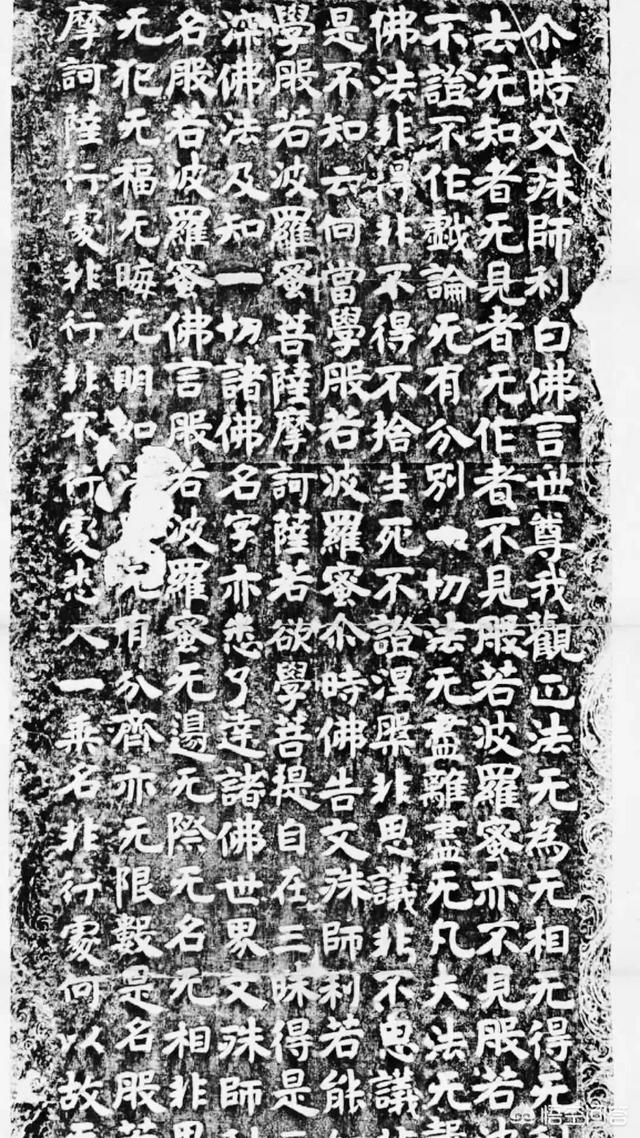 尒時文殊師利白佛言世尊我觀正法无為无相无得无
去无知者无見者无作者不見般若波羅蜜亦不見般若
不證不作戲論无有分別一切法无盡離盡无凡夫法无聲
佛法非得非不得不捨生死不證涅槃非思議非不思議
是不知云何當學般若波羅蜜尒時佛告文殊師利若能
學般若波羅蜜菩薩摩訶薩若欲學菩提自在三昧得是三
深佛法及知一切諸佛名字亦悉了達諸佛世界文殊師利
名般若波羅蜜佛言般若波羅蜜无邊无際无名无相非思
无犯无福无晦无明如无有分齊亦无限數是名般若
摩訶薩行處非行非不行處悉入一乘名非行處何以故